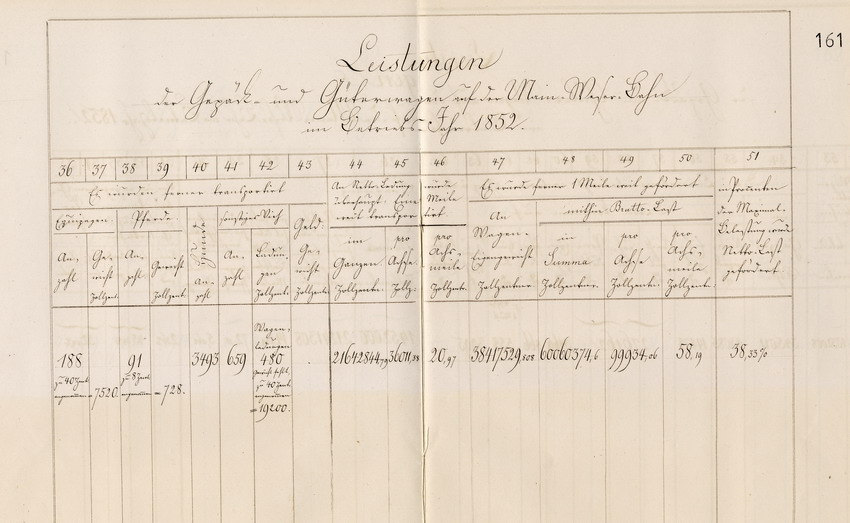 161
Leistungen
der Gepäck- und Güterwagen auf der Main-Weser-Bahn
im Betriebs-Jahr 1852.
36 37 38 39 40 41 42 43 44 45 46 47 48 49 50 51
Es wurden ferner transportirt
An Netto-Ladung wurde
überhaupt: Eine Meile
weit transportirt
Es wurde ferner 1 Meile weit gefördert
in Prozenten
der Maximal-
Belastung wurde
Netto-Last
gefördert.
Equipagen Pferde Hunde sonstiges Vieh Geld:
An Wagen-Eigengewicht
mithin Brutto-Last
An-zahl Ge-wicht Zollzent.
An-zahl Gewicht Zollzent.
An-zahl
An-zahl Ladun-gen Zollzent.
Ge-wicht Zollzent.
im Ganzen Zollzentr.
pro Achse Zollz.
pro Achs-meile Zollzentr.
Zollzentner.
in Summa Zollzentner.
pro Achse Zollzentr.
pro Achs-meile Zollzent.
188
zu 40 Zent.
angenommen
= 7520.
91
zu 8 Zent.
angenommen
= 728.
3493
659
Wagen-
ladungen
480
Gewicht fehlt,
zu 40 Zent.
angenommen
= 19200.
21642844,79
36011,38
20,97
38417529,508
60060374,6
99934,06
58,19
38,3370